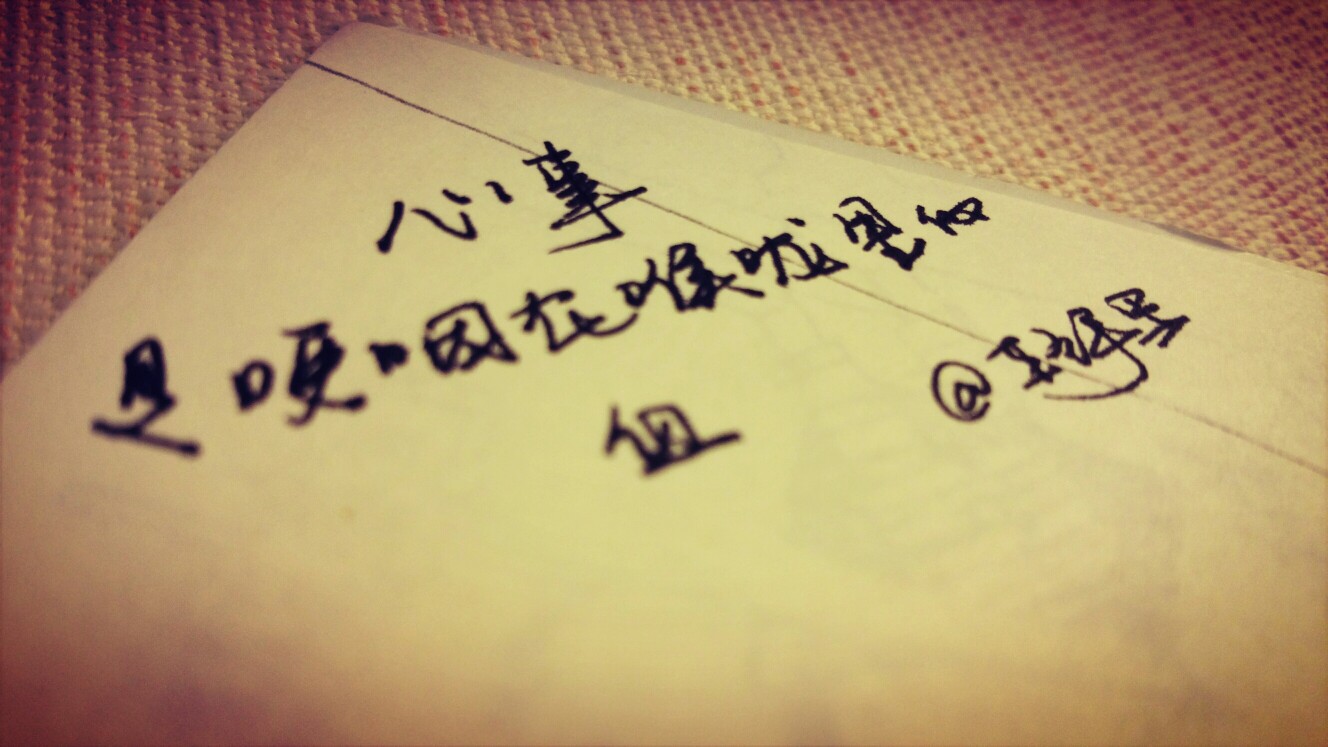 心事
是哽咽在喉咙里的
@